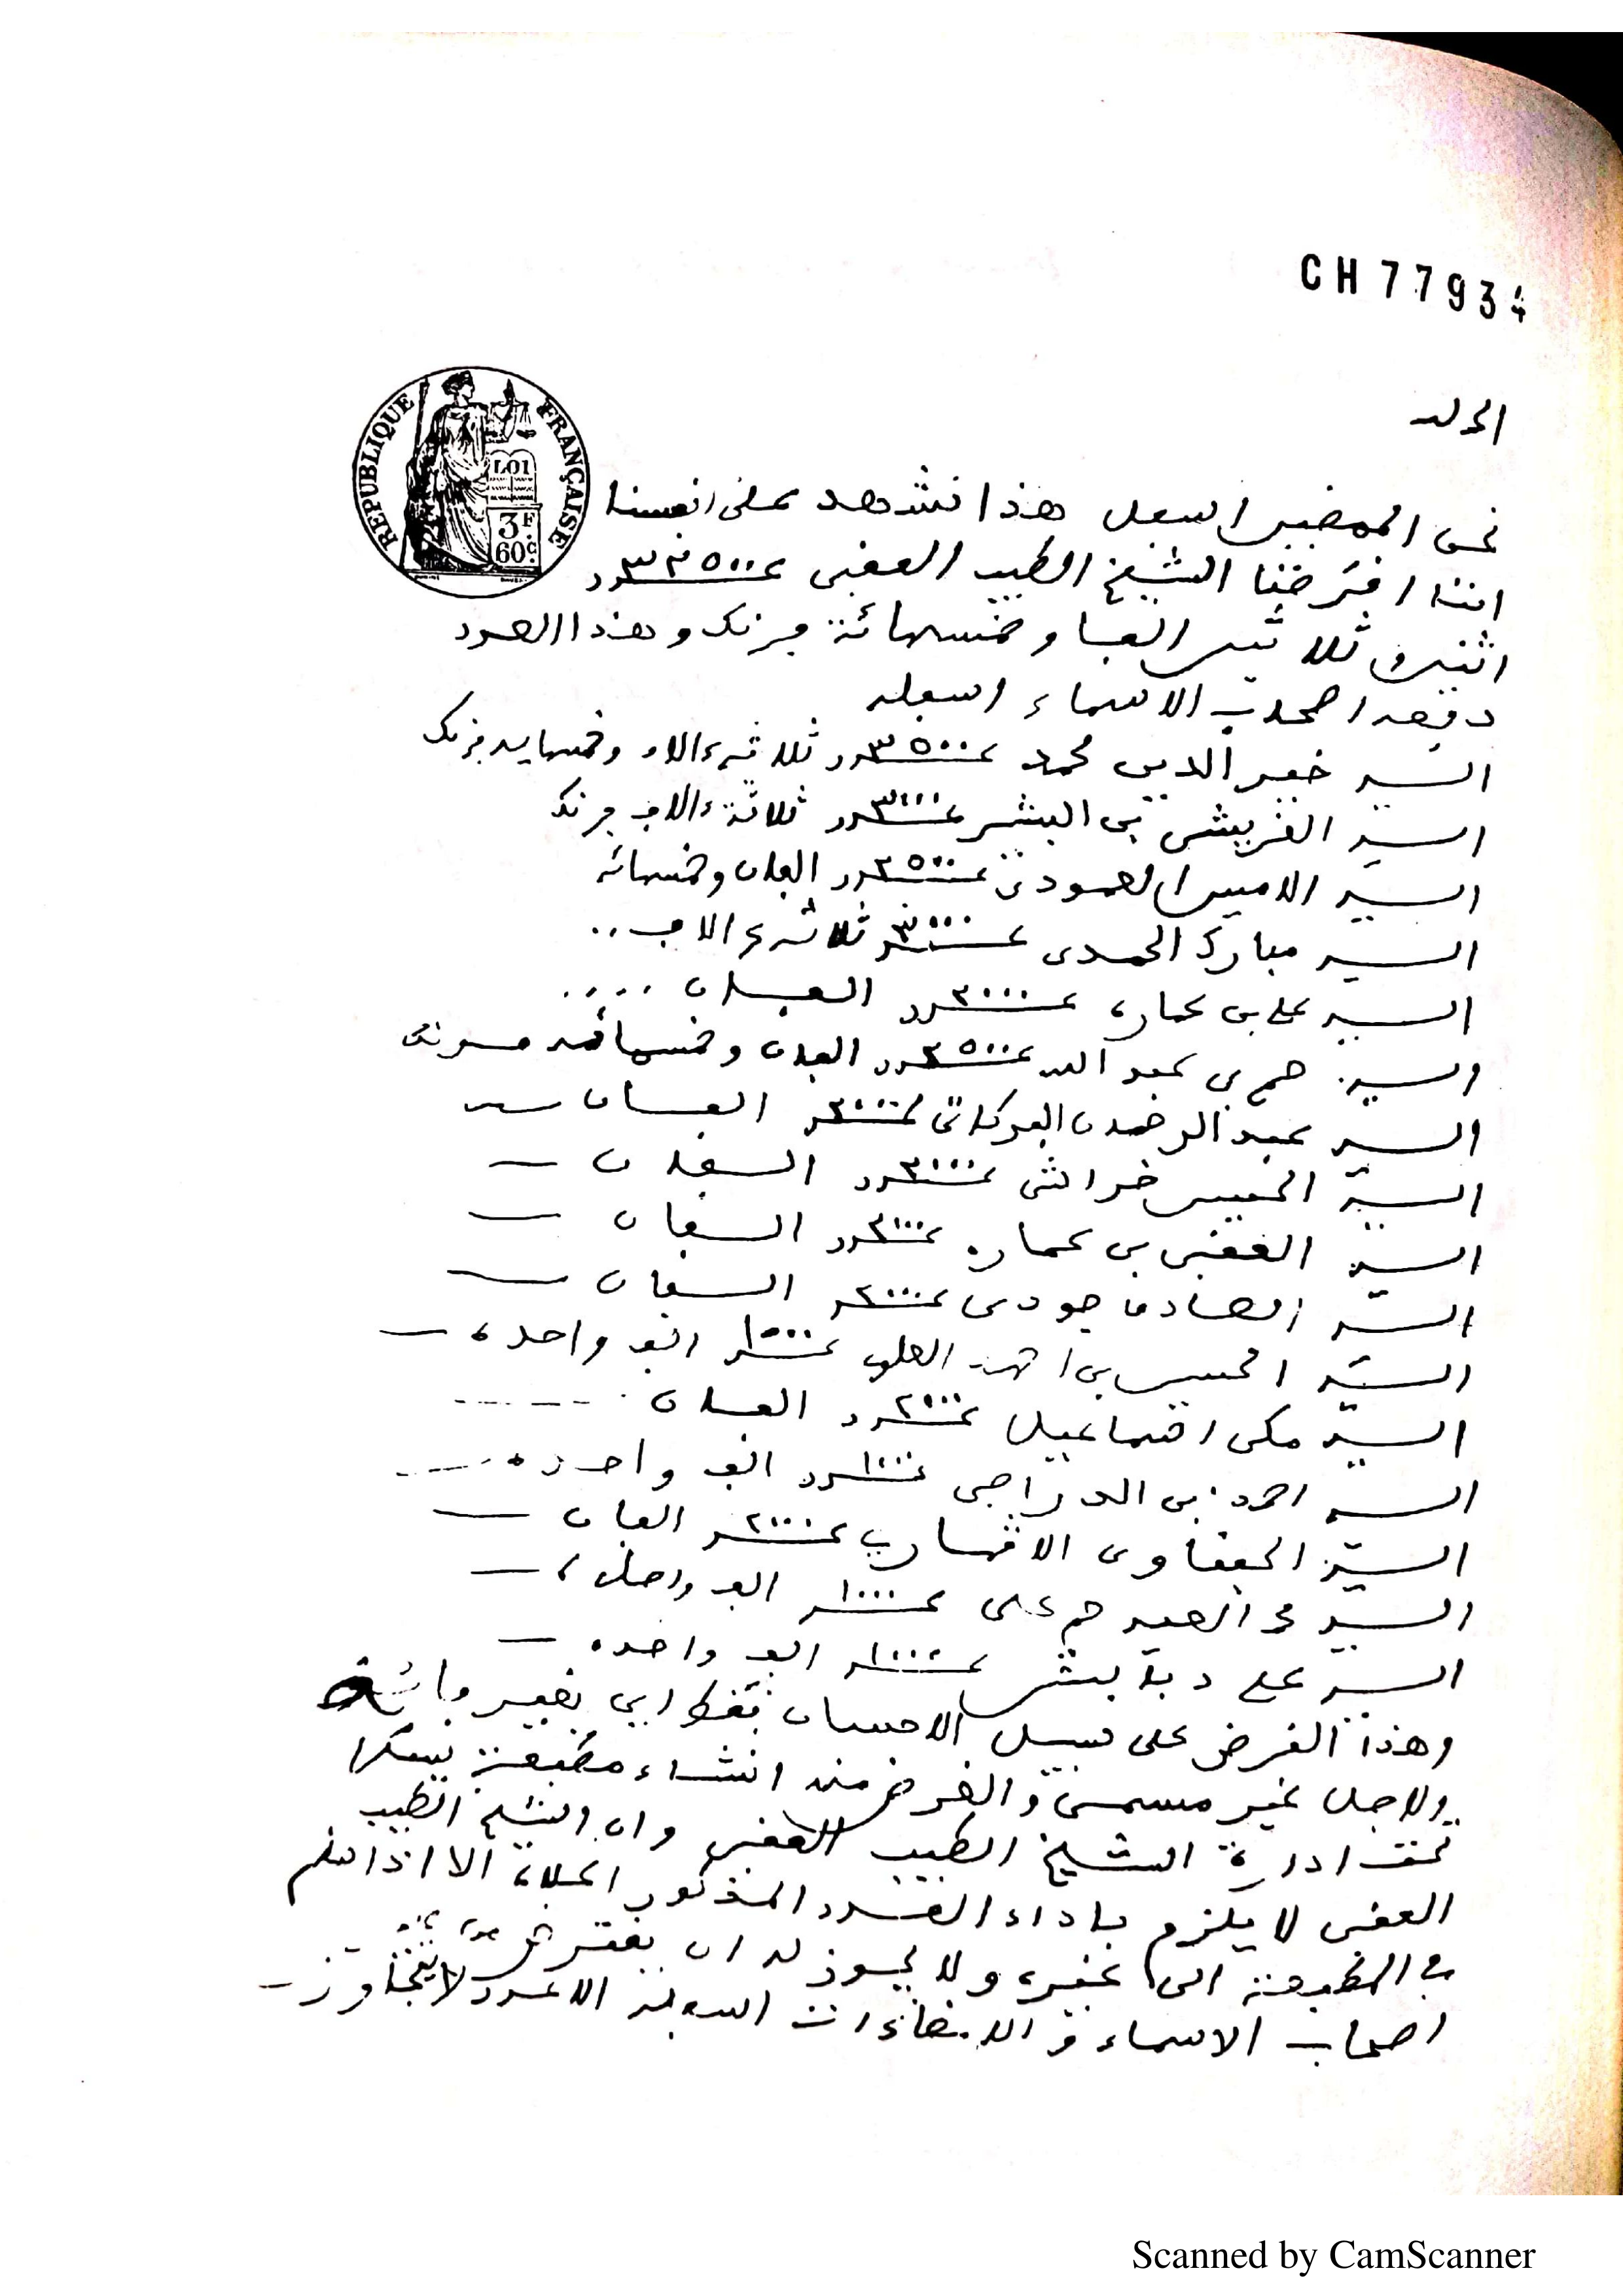 CH 77934
REPUBLIQUE FRANÇAISE
LOI
3F.
60c.
الحمد لله
نحن الممضين اسفل هذا نشهد على انفسنا
اننا اقرضنا الشيخ الطيب العقبى عدد ٣٢٥٠٠
اثنين وثلاثين الفا وخمسمائة فرنك وهذا العدد
دفعه اصحاب الاسماء اسفله
السيد خير الدين محمد عدد ٣٥٠٠ ثلاثة ءالاف وخمسماية فرنك
السيد القريشى بن البشر عدد ٣٠٠٠ ثلاثة ءالاف فرنك
السيد الامين العمودى عدد ٢٥٠٠ الفان وخمسمائه
السيد مبارك الحمدى عدد ٣٠٠٠ ثلاثة ءالاف ..
السيد على بن عماره عدد ٢٠٠٠ الفان ....
السيد حم بن عبد الله عدد ٢٥٠٠ الفان وخمسمائه
السيد عبد الرحمان البركاتى عدد ٢٠٠٠ الفان —
السيد خراشى عدد ٢٠٠٠ الفان —
السيد العقبى بن عماره عدد ٢٠٠٠ الفان —
السيد الصادق جودى عدد ٢٠٠٠ الفان —
السيد الحسين بن احمد عدد ١٠٠٠ الف واحده —
السيد مكى اسماعيل عدد ٢٠٠٠ الفان
السيد احمد بن الدراجى عدد ١٠٠٠ الف واحده
السيد الحفناوى عدد ٢٠٠٠ الفان —
السيد العيد حم على عدد ١٠٠٠ الف واحده —
السيد على دبة بشر عدد ١٠٠٠ الف واحده —
وهذا القرض على سبيل الاحسان فقط اى بغير فائدة
ولاجل غير مسمى والغرض منه انشاء مطبعة
تحت ادارة الشيخ الطيب العقبى وان الشيخ الطيب
العقبى لا يلزم باداء العدد المذكور اعلاه الا اذا سلم
فى المطبعة الى غيره ولا يجوز له ان يقترض من غير
اصحاب الاسماء والامضاءات اسفله الا عدد لا يتجاوز —
Scanned by CamScanner